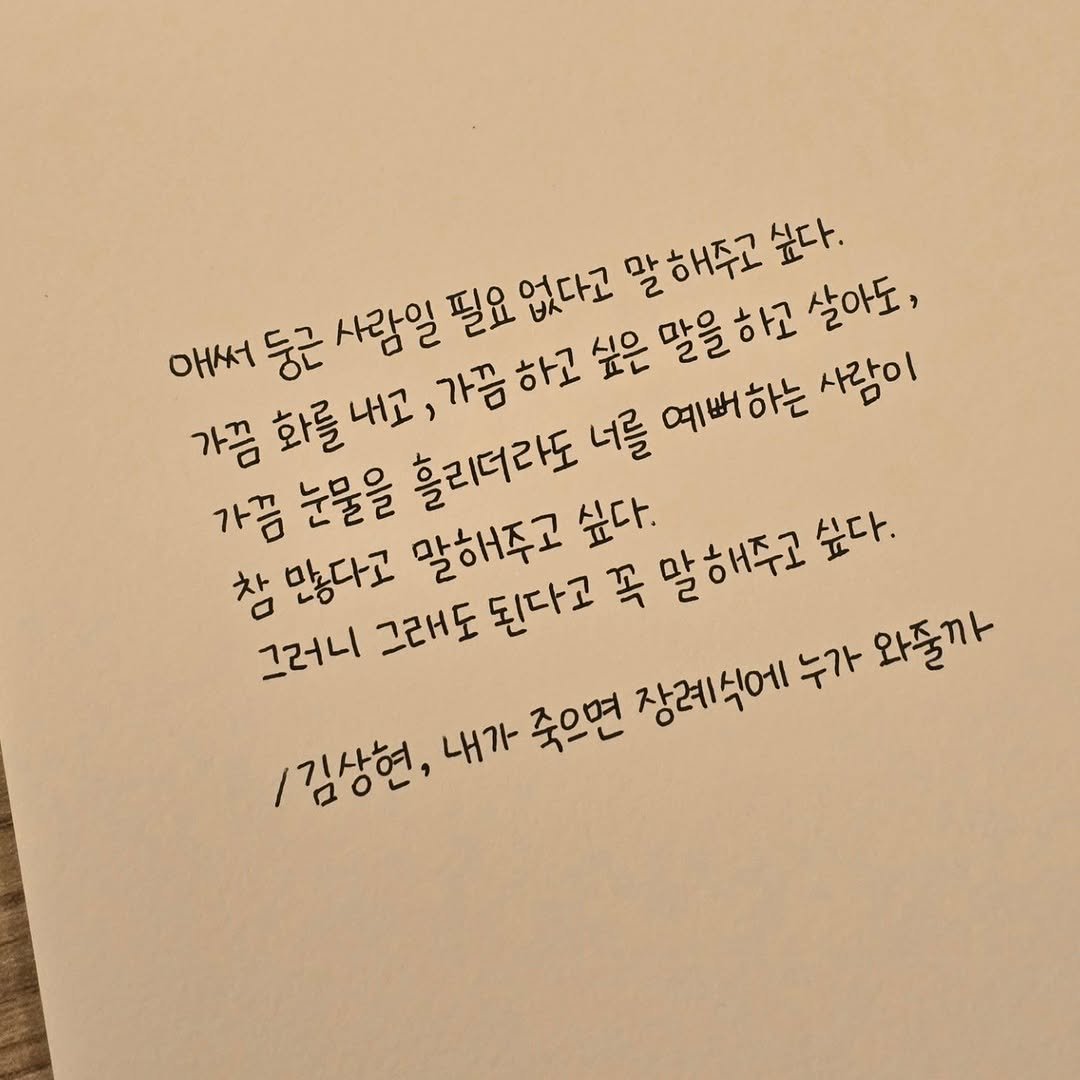 애써 둥근 사람일 필요 없다고 말해주고 싶다.
가끔 화를 내고, 가끔 하고 싶은 말을 하고 살아도,
가끔 눈물을 흘리더라도 너를 예뻐하는 사람이
참 많다고 말해주고 싶다.
그러니 그래도 된다고 꼭 말해주고 싶다.
/김상현, 내가 죽으면 장례식에 누가 와줄까